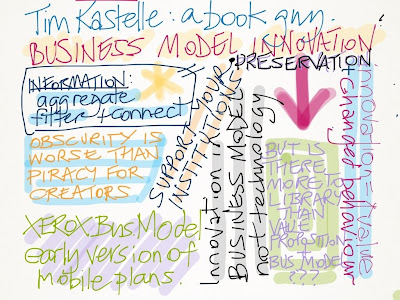 Tim Kastelle: a book ann.
BUSINESS MODEL INNOVATION
• PRESERVATION
INFORMATION:
aggregate
filter + connect
OBSCURITY IS
WORSE THAN
PIRACY FOR
CREATORS
XEROX.Bus.Model
early version of
mobile plans.
SUPPORT YOUR
INSTITUTION
Innovation
BUSINESS MODEL
not technology
BUT IS
THERE
MORE TO
LIBRARY
THAN
VALUE
PROPOSITION
+
BUS MODEL
???
innovation = value
+ changed behaviour